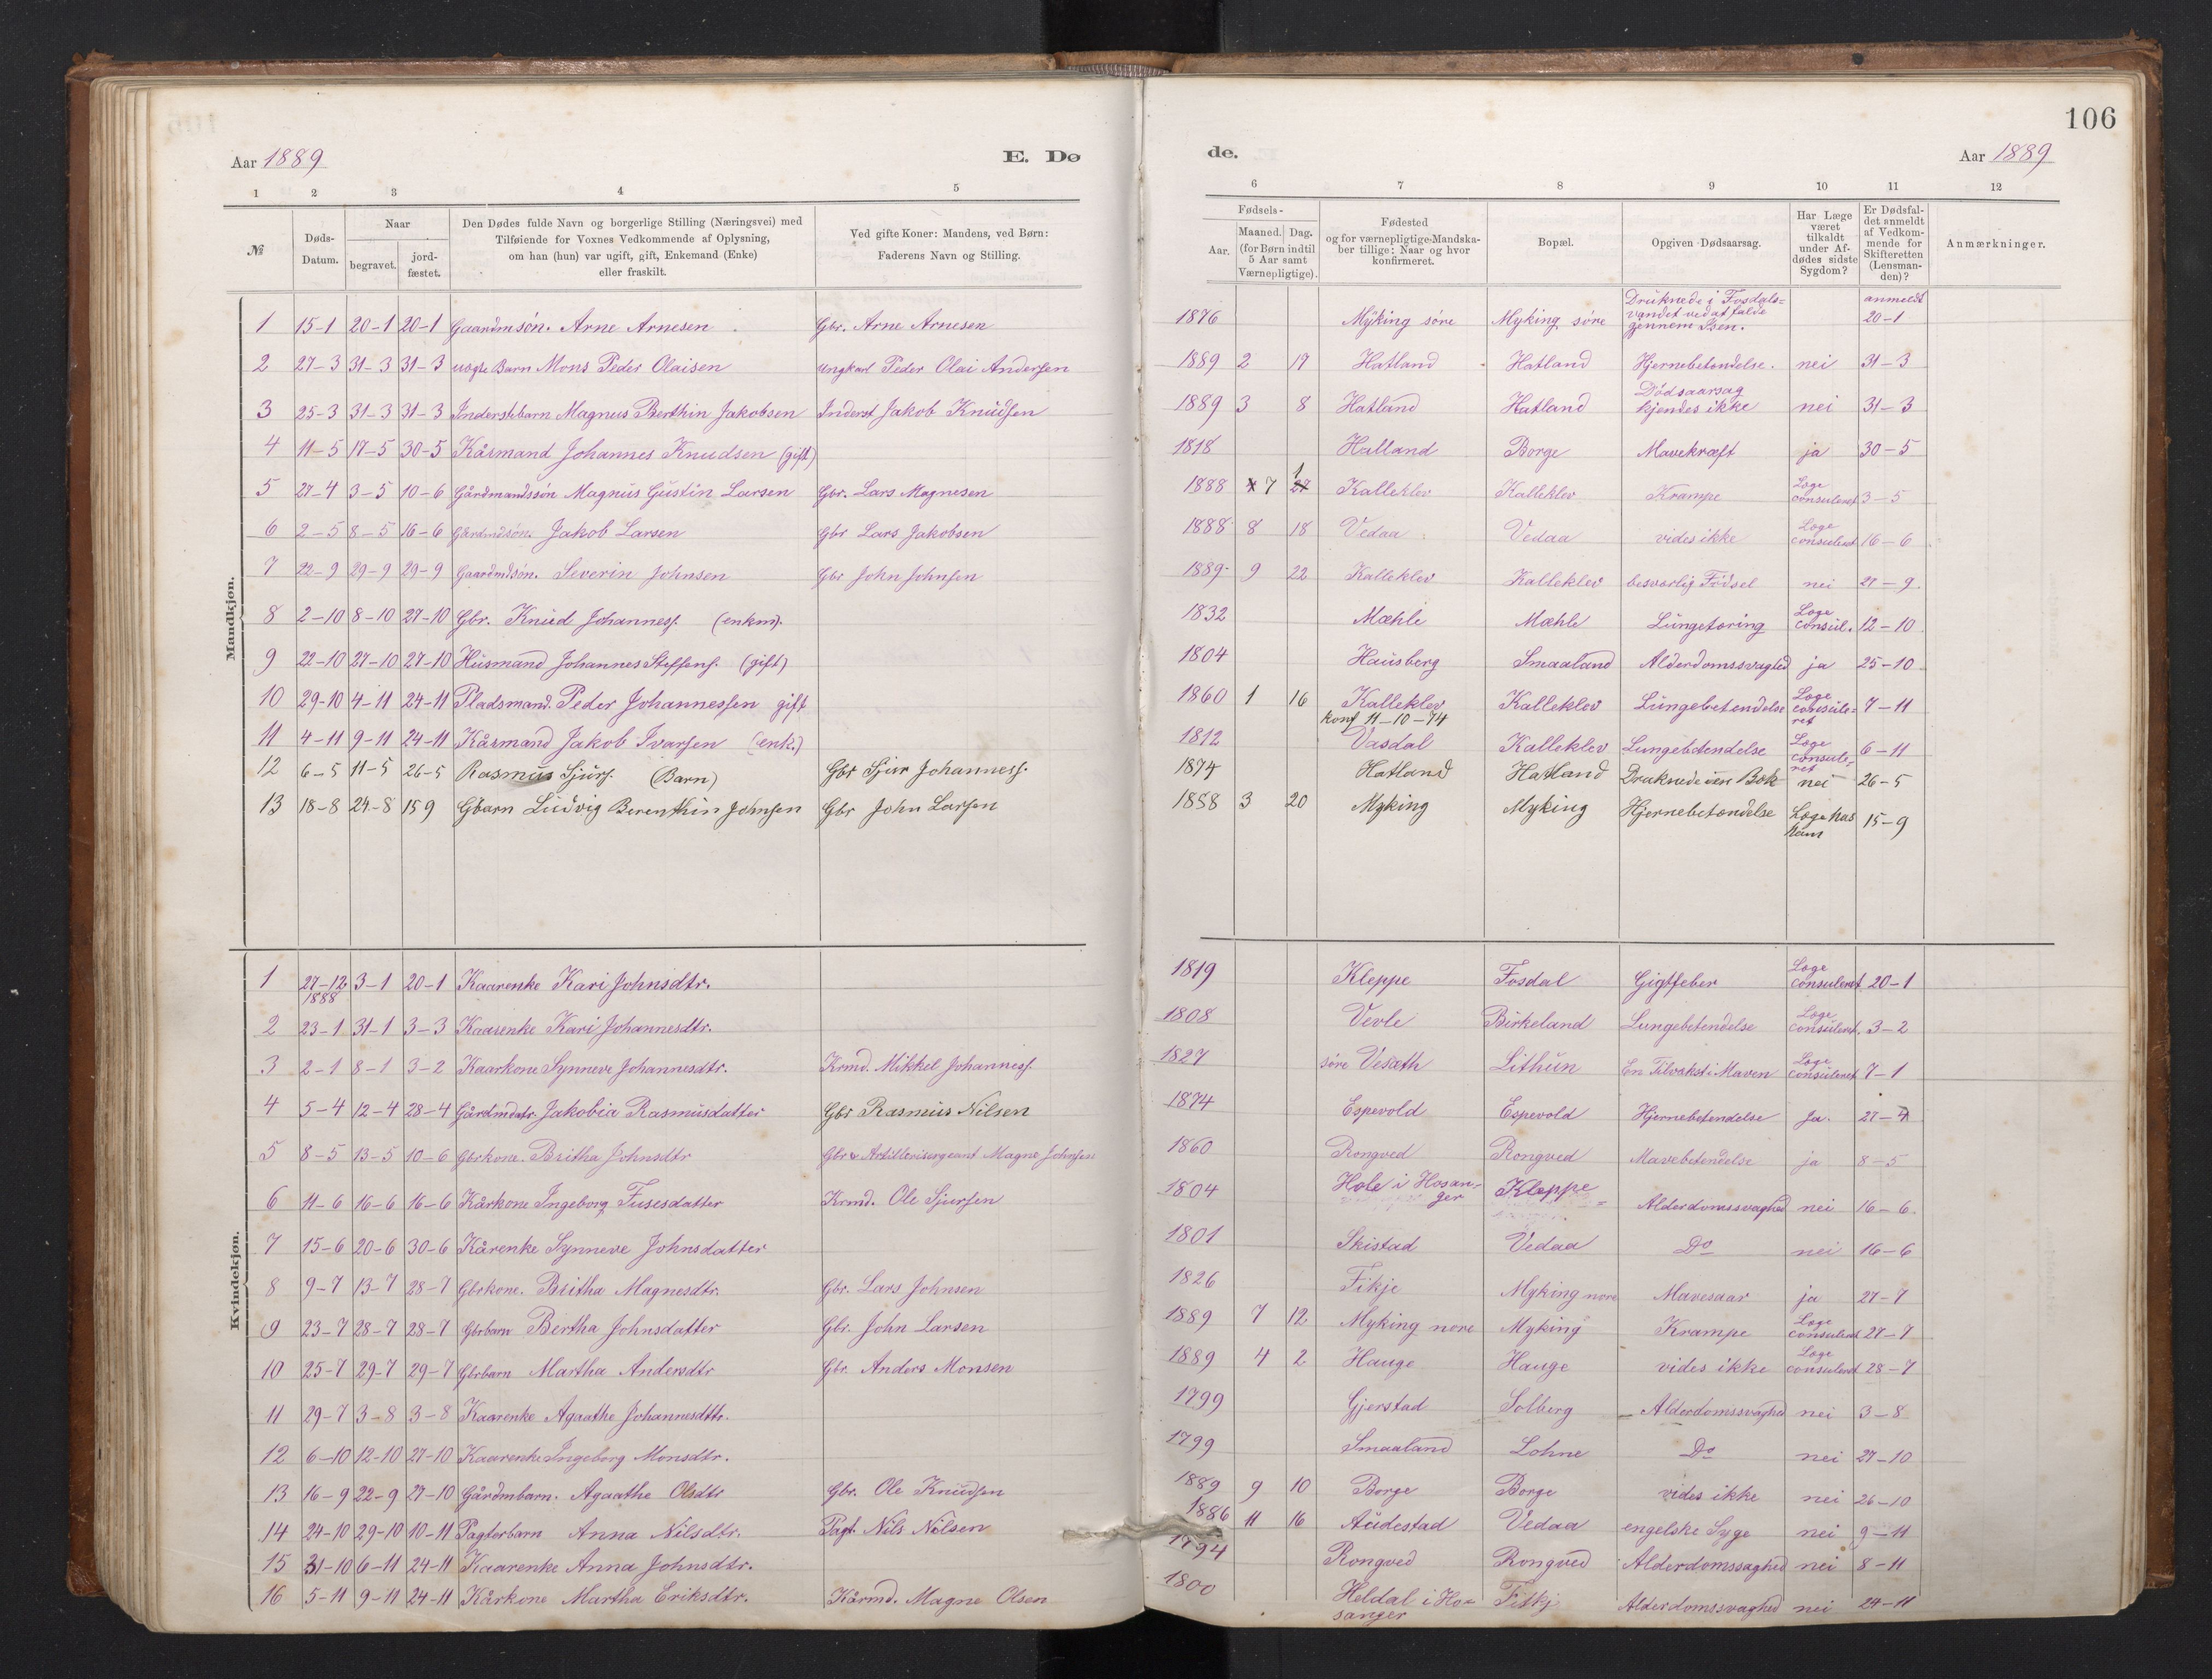 106
Aar 1889 E. Dø de. Aar 1889
1 2 3 4 5 6 7 8 9 10 11 12
№ Døds-Datum. Naar begravet. jord-fæstet. Den Dødes fulde Navn og borgerlige Stilling (Næringsvei) med Tilføiende for Voxnes Vedkommende af Oplysning, om han (hun) var ugift, gift, Enkemand (Enke) eller fraskilt. Ved gifte Koner: Mandens, ved Børn: Faderens Navn og Stilling. Fødsels- Aar. Maaned. Dag. (for Børn indtil 5 Aar samt Værnepligtige). Fødested og for værnepligtige Mandska-ber tillige: Naar og hvor konfirmeret. Bopæl. Opgiven Dødsaarsag. Har Læge været tilkaldt under Af-dødes sidste Sygdom? Er Dødsfal-det anmeldt af Vedkom-mende for Skifteretten (Lensman-den)? Anmærkninger.
Mandkjøn.
1 15-1 20-1 20-1 Gaardmsøn. Arne Arnesen Gbr. Arne Arnesen 1876 Myking søre Myking søre Druknede i Fosdals=vandet ved at falde gjennem Isen. anmeldt 20-1
2 27-3 31-3 31-3 uægte Barn Mons Peder Olaisen Ungkarl Peder Olai Andersen 1889 2 17 Hatland Hatland Hjernebetændelse. nei 31-3
3 25-3 31-3 31-3 Inderstebarn Magnus Berthin Jakobsen Inderst Jakob Knudsen 1889 3 8 Hatland Hatland Dødsaarsag kjendes ikke nei 31-3
4 11-5 17-5 30-5 Kårmand Johannes Knudsen (gift) 1818 Halland Borge Mavekræft ja 30-5
5 27-4 3-5 10-6 Gårdmandssøn Magnus Gustin Larsen Gbr. Lars Magnesen 1888 7 1 Kalleklev Kalleklev Krampe Læge consuleret 3-5
6 2-5 8-5 16-6 Gårdmdsøn. Jakob Larsen Gbr Lars Jakobsen 1888 8 18 Vedaa Vedaa vides ikke Læge consuleret 16-6
7 22-9 29-9 29-9 Gaardmdsøn. Severin Johnsen Gbr John Johnsen 1889 9 22 Kalleklev Kalleklev besværlig Fødsel nei 27-9.
8 2-10 8-10 27-10 Gbr. Knud Johanness. (enkm). 1832 Mæhle Mæhle Lungetæring Læge consul. 12-10
9 22-10 27-10 27-10 Husmand Johannes Steffens. (gift) 1804 Hausberg Smaaland Alderdomssvaghed ja 25-10
10 29-10 4-11 24-11 Pladsmand. Peder Johannessen gift 1860 1 16 Kalleklev konf 11-10-74 Kalleklev Lungebetændelse Læge consule=ret 7-11
11 4-11 9-11 24-11 Kårmand Jakob Ivarsen (enk.) 1812 Vasdal Kalleklev Lungebetændelse Læge consule=ret 6-11
12 6-5 11-5 26-5 Rasmus Sjurs. (Barn) Gbr Sjur Johanness. 1874 Hatland Hatland Druknede i en Bæk nei 26-5
13 18-8 24-8 15 9 Gbarn Ludvig Berenthin Johnsen Gbr John Larsen 1888 3 20 Myking Myking Hjernebetændelse Læge has ham 15-9
Kvindekjøn.
1 27-12 1888 3-1 20-1 Kaarenke Kari Johnsdtr. 1819 Kleppe Fosdal Gigtfeber Læge consuleret 20-1
2 23-1 31-1 3-3 Kaarenke Kari Johannesdtr. 1808 Vevle Birkeland Lungebetændelse Læge consuleret. 3-2
3 2-1 8-1 3-2 Kaarkone Synneve Johannesdtr. Krmd. Mikkel Johanness. 1827 søre Vesæth Lithun En Tilvækst i Maven Læge consuleret 7-1
4 5-4 12-4 28-4 Gårdmdatr. Jakobia Rasmusdatter Gbr Rasmus Nilsen 1874 Espevold Espevold Hjernebetændelse Ja. 27-4
5 8-5 13-5 10-6 Gbrkone. Britha Johnsdtr Gbr & Artillerisergeant Magne Johnsen 1860 Rongved Rongved Mavebetændelse ja 8-5
6 11-6 16-6 16-6 Kårkone Ingeborg Fusesdatter Krmd. Ole Sjursen 1804 Hole i Hosan=ger Kleppe Alderdomssvaghed nei 16-6.
7 15-6 20-6 30-6 Kårenke Synneve Johnsdatter 1801 Skistad Vedaa Do nei 16-6
8 9-7 13-7 28-7 Gbrkone. Britha Magnesdtr. Gbr. Lars Johnsen 1826 Fikje Myking nore Mavesaar ja 27-7
9 23-7 28-7 28-7 Gbrbarn Bertha Johnsdatter Gbr. John Larsen 1889 7 12 Myking nore Myking Krampe Læge consuleret 27-7
10 25-7 29-7 29-7 Gbrbarn Martha Andersdtr Gbr. Anders Monsen 1889 4 2 Hauge Hauge vides ikke Læge consuleret 28-7
11 29-7 3-8 3-8 Kaarenke Agaathe Johannesdttr. 1799 Gjerstad Solberg Alderdomssvaghed nei 3-8
12 6-10 12-10 27-10 Kaarenke Ingeborg Monsdtr. 1799 Smaaland Lohne Do nei 27-10
13 16-9 22-9 27-10 Gårdmbarn. Agaathe Olsdtr Gbr. Ole Knudsen 1889 9 10 Borge Borge vides ikke nei 26-10
14 24-10 29-10 10-11 Pagterbarn Anna Nilsdtr. Pagt. Nils Nilsen 1886 11 16 Audestad Vedaa engelske Syge nei 9-11
15 31-10 6-11 24-11 Kaarenke Anna Johnsdtr. 1794 Rongved Rongved Alderdomssaghed nei 8-11
16 5-11 9-11 24-11 Kårkone Martha Eriksdtr. Kårmd. Magne Olsen 1800 Heldal i Ho=sanger Fitkj Alderdomssvaghed nei 24-11